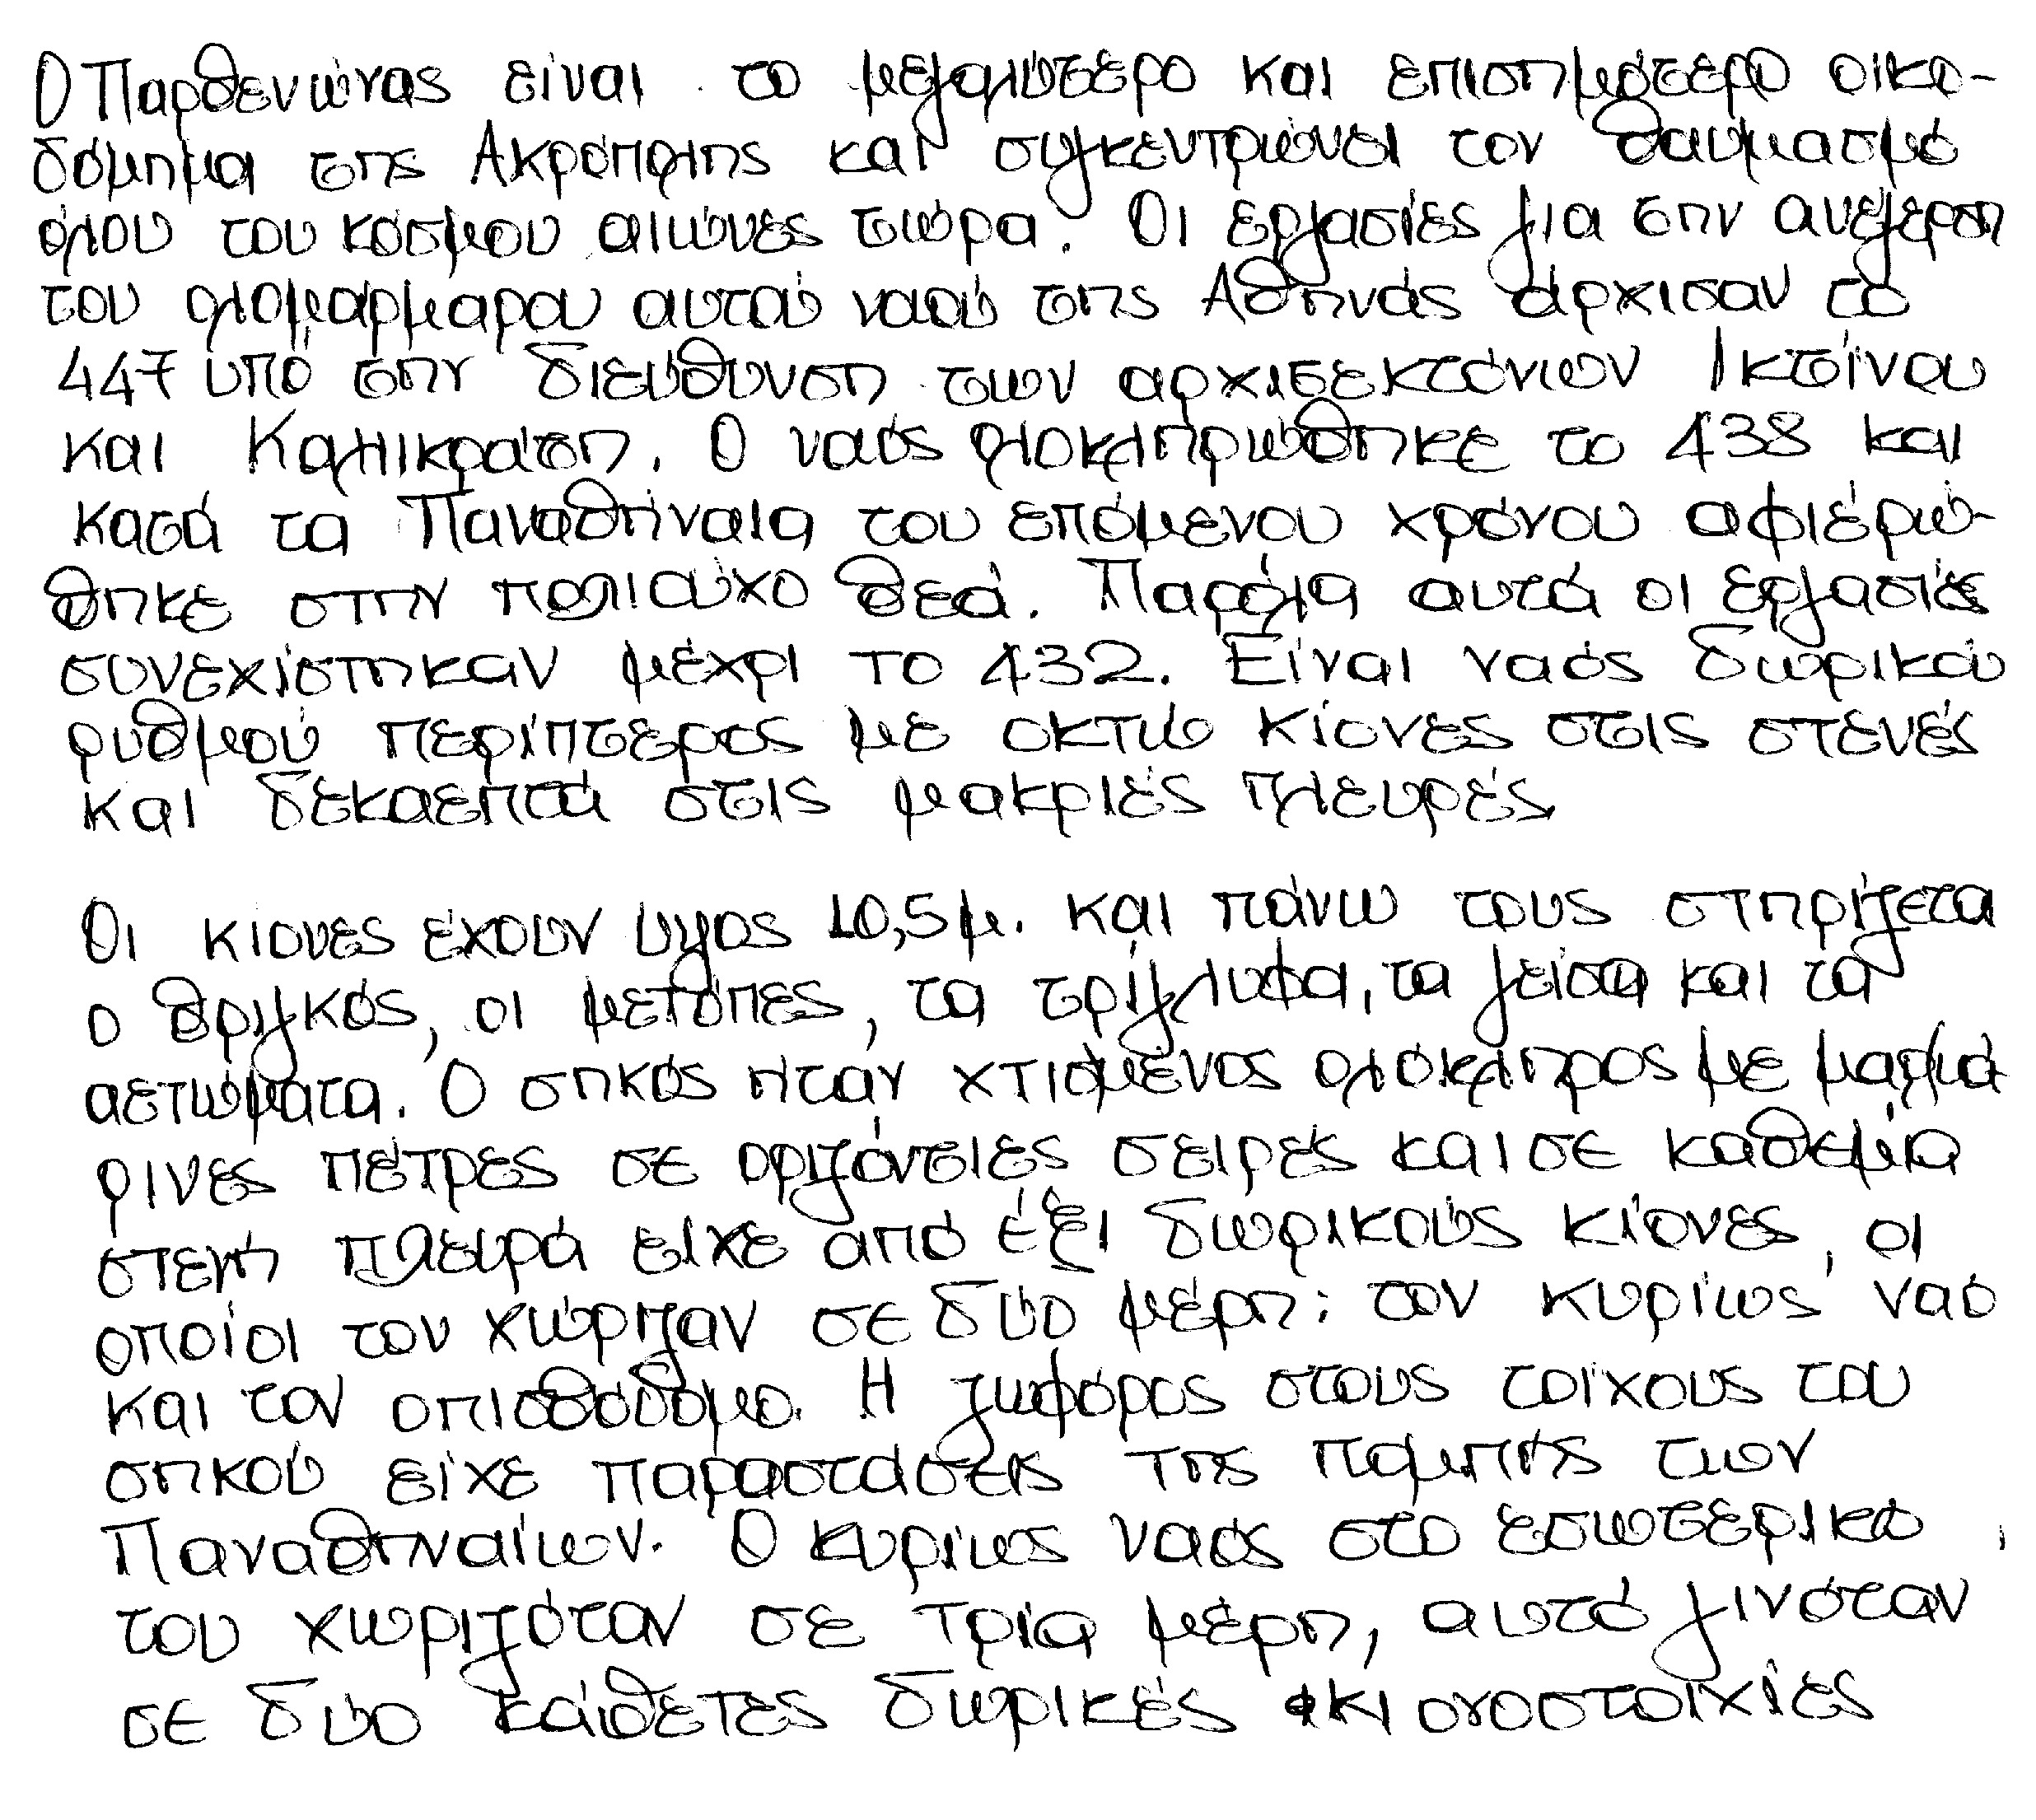 Ο Παρθενώνας είναι το μεγαλύτερο και επισημότερο οικο-
δόμημα της Ακρόπολης και συγκεντρώνει τον θαυμασμό
όλου του κόσμου αιώνες τώρα. Οι εργασίες για την ανέγερση
του ολομάρμαρου αυτού ναού της Αθηνάς άρχισαν το
447 υπό την διεύθυνση των αρχιτεκτόνων Ικτίνου
και Καλλικράτη. Ο ναός ολοκληρώθηκε το 438 και
κατά τα Παναθήναια του επόμενου χρόνου αφιερώ-
θηκε στην πολιούχο θεά. Παρόλα αυτά οι εργασίες
συνεχίστηκαν μέχρι το 432. Είναι ναός δωρικού
ρυθμού περίπτερος με οκτώ κίονες στις στενές
και δεκαεπτά στις μακριές πλευρές.
Οι κίονες έχουν υψος 10,5 μ. και πάνω τους στηρίζεται
ο θριγκός, οι μετόπες, τα τρίγλυφα, τα γείσα και τα
αετώματα. Ο σηκός ήταν χτισμένος ολόκληρος με μαρμά-
ρινες πέτρες σε οριζόντιες σειρές και σε καθεμία
στενή πλευρά είχε από έξι δωρικούς κίονες, οι
οποίοι τον χώριζαν σε δύο μέρη: τον κυρίως ναό
και τον οπισθόδομο. Η ζωφόρος στους τοίχους του
σηκού είχε παραστάσεις της πομπής των
Παναθηναίων. Ο κυρίως ναός στο εσωτερικό
του χωριζόταν σε τρία μέρη, αυτό γινόταν
σε δύο κάθετες δωρικές κιονοστοιχίες